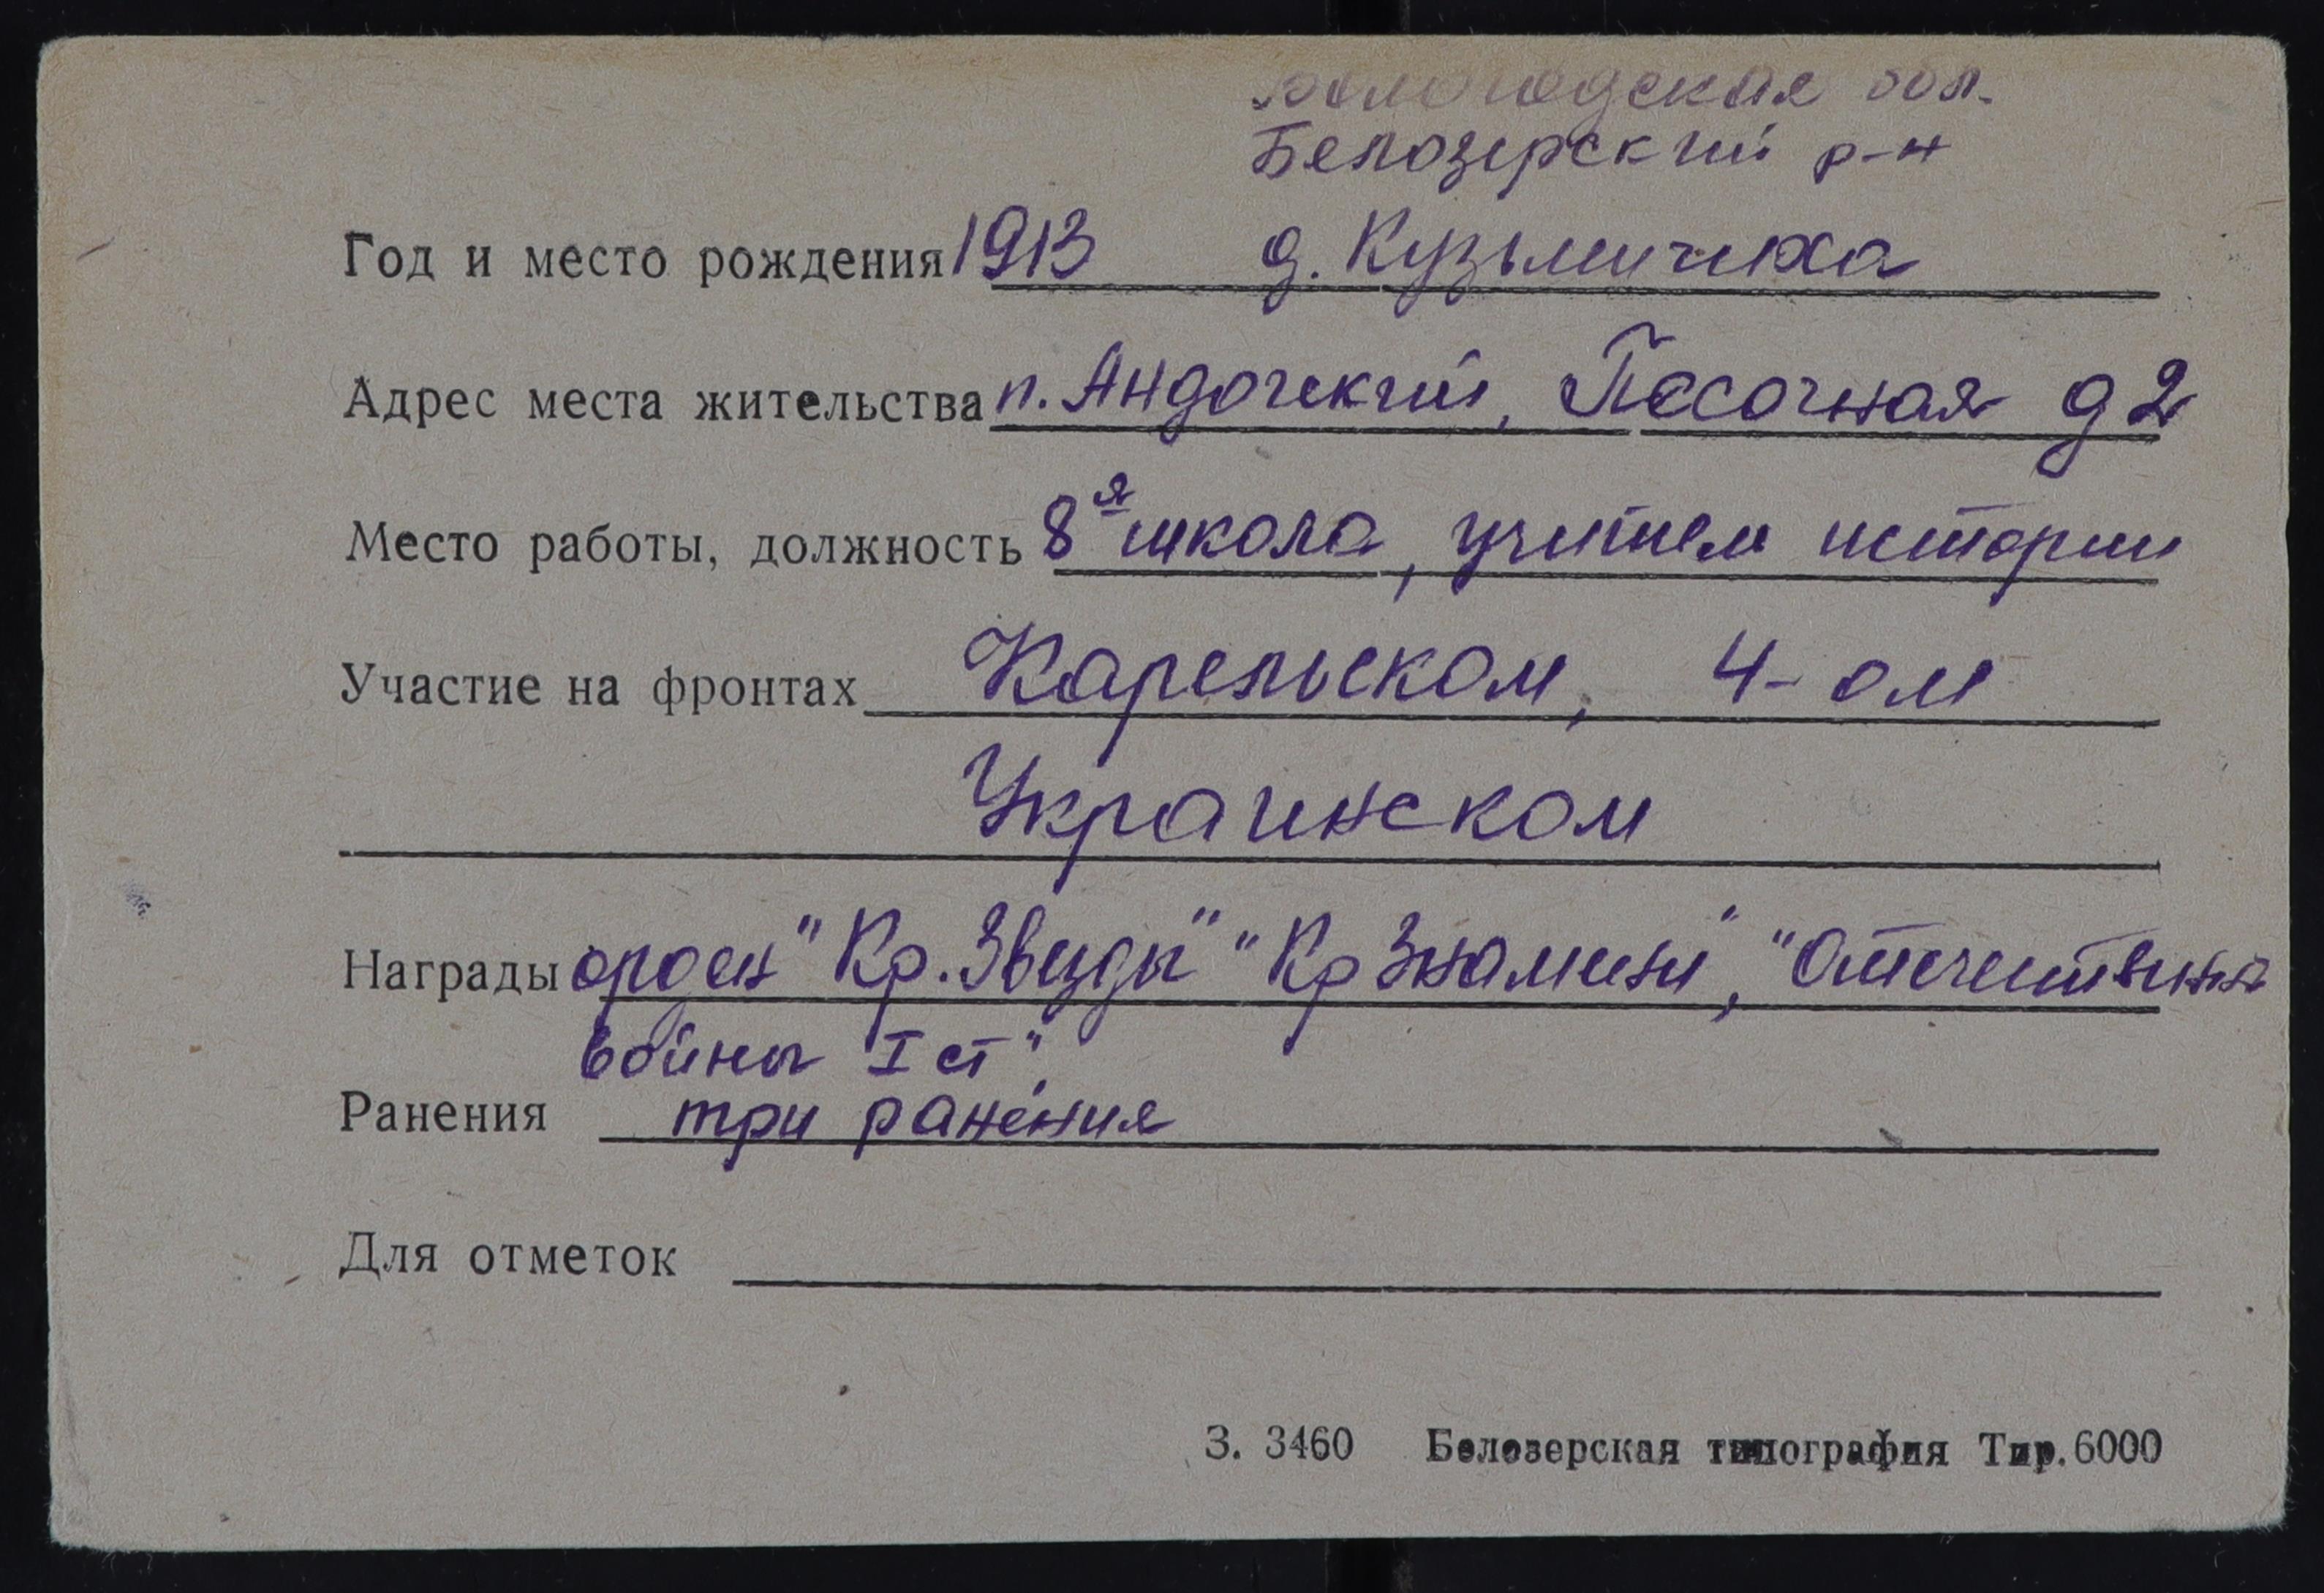 Вологодская обл.
Белозерский р-н
Год и место рождения 1913 д. Кузьмичиха
Адрес места жительства п. Андогский, Песочная д 2
Место работы, должность 8я школа, учителем истории
Участие на фронтах Карельском, 4-ом
Украинском
Награды орден "Кр. Звезды" "Кр Знамени", "Отечествення
войны I ст".
Ранения три ранения
Для отметок
З. 3460 Белозерская типография Тир. 6000